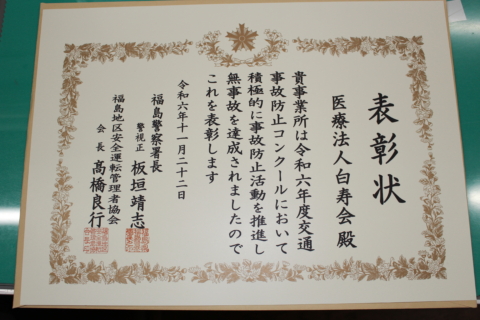 表彰状
医療法人白寿会殿
貴事業所は令和六年度交通
事故防止コンクールにおいて
積極的に事故防止活動を推進し
無事故を達成されましたので
これを表彰します
令和六年十一月二十二日
福島警察署長
警視正 板垣靖志
福島地区安全運転管理者協会
会長 高橋良行